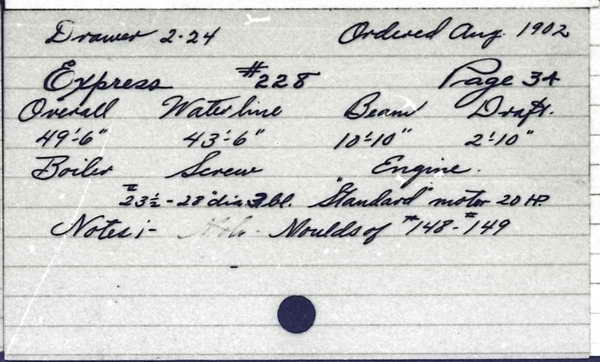 Drawer 2-24 Ordered Aug. 1902
Express #228 Page 34
Overall Waterline Beam Draft.
49'-6" 43'-6" 10'-10" 2'-10"
Boiler Screw Engine.
23½ - 28" dia. 3 bl. "Standard" motor 20 HP.
Notes:- Moulds of #148-#149